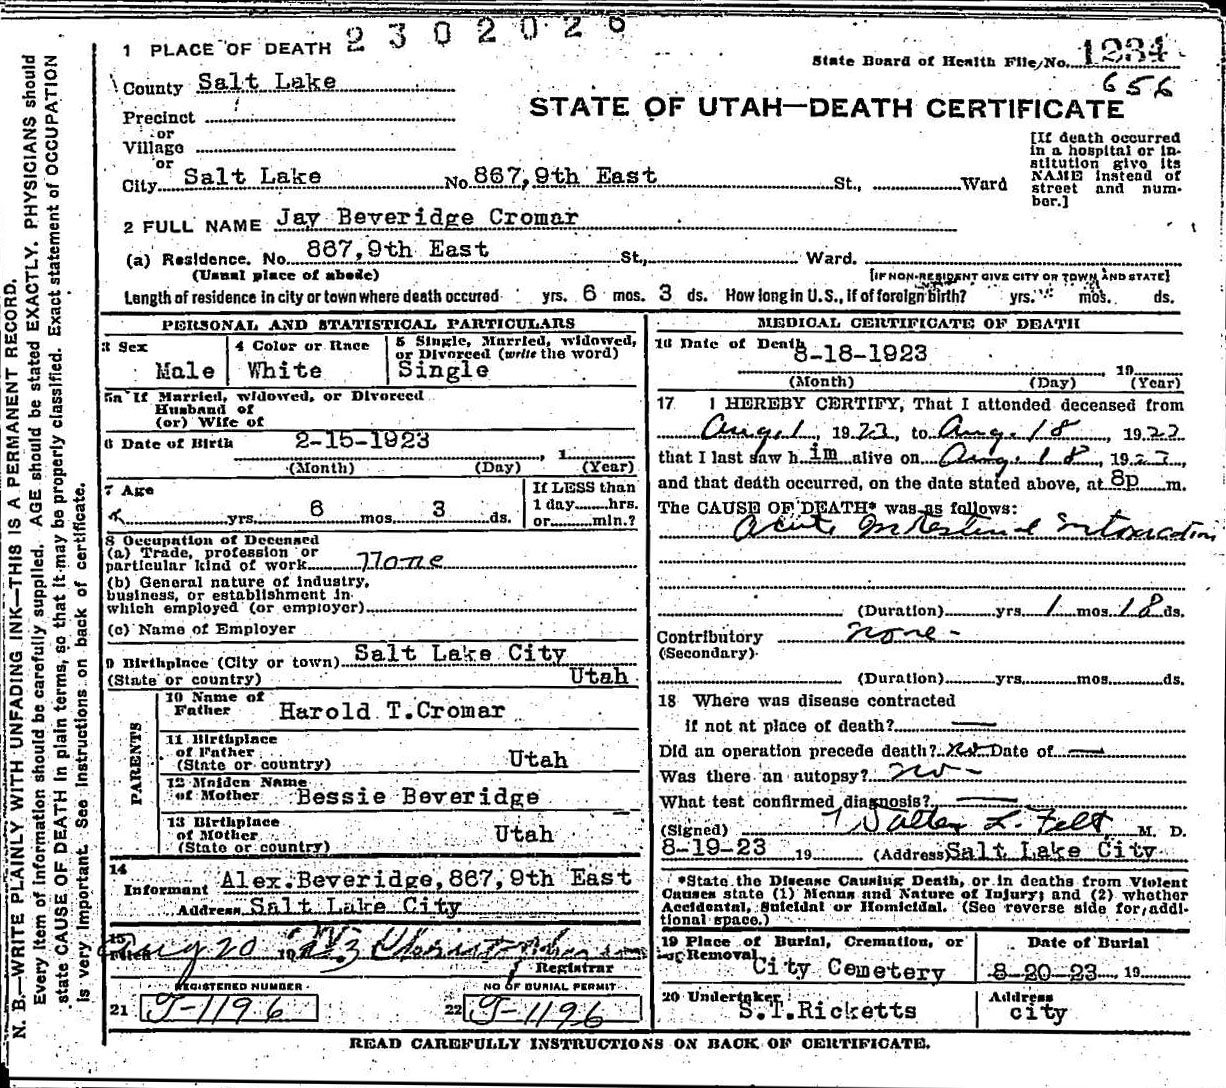 2302026
1 PLACE OF DEATH
State Board of Health File No. 1234
County Salt Lake
656
STATE OF UTAH—DEATH CERTIFICATE
Precinct
or
Village
or
City Salt Lake No. 867, 9th East St., Ward
[If death occurred in a hospital or institution give its NAME instead of street and number.]
2 FULL NAME Jay Beveridge Cromar
(a) Residence. No. 867, 9th East St., Ward.
(Usual place of abode)
[IF NON-RESIDENT GIVE CITY OR TOWN AND STATE]
Length of residence in city or town where death occured yrs. 6 mos. 3 ds. How long in U.S., if of foreign birth? yrs. mos. ds.
PERSONAL AND STATISTICAL PARTICULARS
3 Sex
Male
4 Color or Race
White
5 Single, Married, widowed,
or Divorced (write the word)
Single
5a If Married, widowed, or Divorced
Husband of
(or) Wife of
6 Date of Birth 2-15-1923 , 1
(Month) (Day) (Year)
7 Age
yrs. 6 mos. 3 ds.
If LESS than
1 day hrs.
or min.?
8 Occupation of Deceased
(a) Trade, profession or
particular kind of work None
(b) General nature of industry,
business, or establishment in
which employed (or employer)
(c) Name of Employer
9 Birthplace (City or town) Salt Lake City
(State or country) Utah
PARENTS
10 Name of
Father Harold T. Cromar
11 Birthplace
of Father
(State or country) Utah
12 Maiden Name
of Mother Bessie Beveridge
13 Birthplace
of Mother
(State or country) Utah
14
Informant Alex. Beveridge, 867, 9th East
Address Salt Lake City
15
Filed Aug 20 19
Registrar
REGISTERED NUMBER
21 J-1196
NO OF BURIAL PERMIT
22 J-1196
MEDICAL CERTIFICATE OF DEATH
16 Date of Death
8-18-1923 19
(Month) (Day) (Year)
17 I HEREBY CERTIFY, That I attended deceased from
Aug. 1, 1923, to Aug. 18, 1923
that I last saw him alive on Aug. 18, 1923,
and that death occurred, on the date stated above, at 8p m.
The CAUSE OF DEATH* was as follows:
Acute Intestinal Intoxication
(Duration) yrs. 1 mos. 18 ds.
Contributory none -
(Secondary)
(Duration) yrs. mos. ds.
18 Where was disease contracted
if not at place of death? —
Did an operation precede death? no Date of —
Was there an autopsy? no -
What test confirmed diagnosis? —
(Signed) Walter L. Felt, M. D.
8-19-23 19 (Address) Salt Lake City
*State the Disease Causing Death, or in deaths from Violent
Causes state (1) Means and Nature of Injury; and (2) whether
Accidental, Suicidal or Homicidal. (See reverse side for additional space.)
19 Place of Burial, Cremation, or
or Removal City Cemetery
Date of Burial
8-20-23, 19
20 Undertaker
S.T. Ricketts
Address
city
READ CAREFULLY INSTRUCTIONS ON BACK OF CERTIFICATE.
N. B.—WRITE PLAINLY WITH UNFADING INK—THIS IS A PERMANENT RECORD.
Every item of information should be carefully supplied. AGE should be stated EXACTLY. PHYSICIANS should
state CAUSE OF DEATH in plain terms, so that it may be properly classified. Exact statement of OCCUPATION
is very important. See instructions on back of certificate.